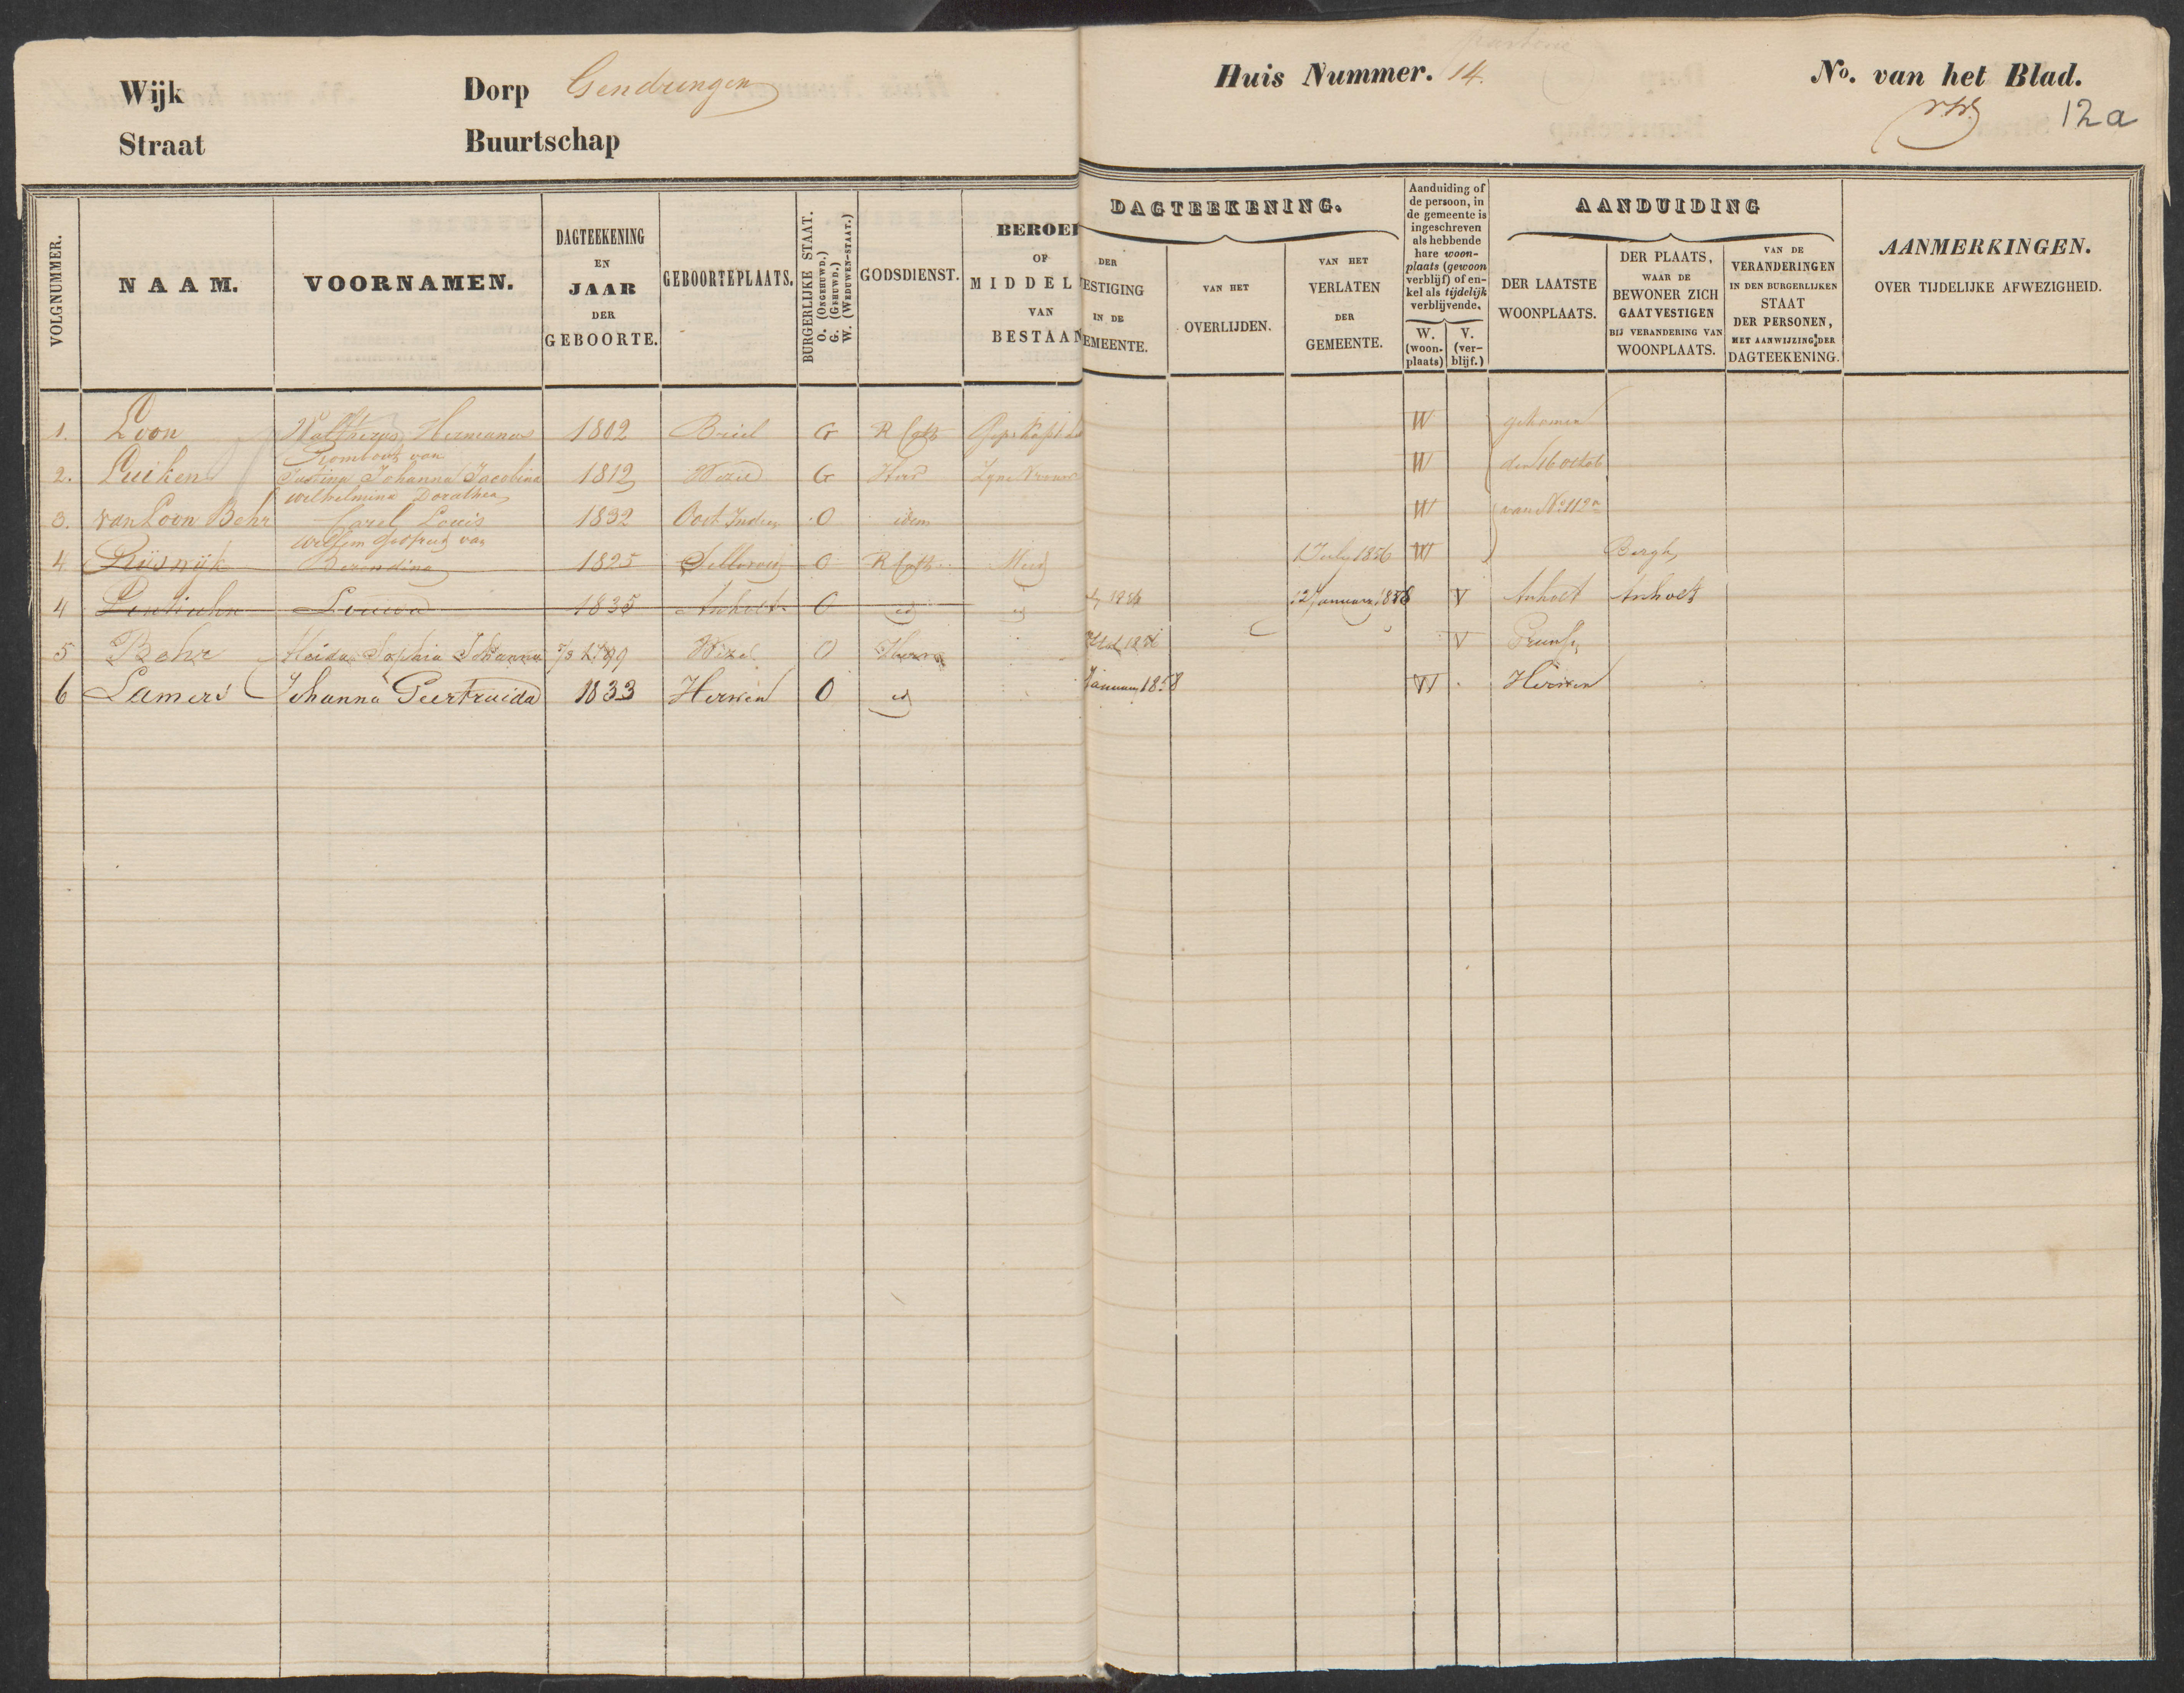 Wijk Dorp Gendringen
Straat Buurtschap
Huis Nummer. 14. No. van het Blad.
12a
VOLGNUMMER.
NAAM.
VOORNAMEN.
DAGTEEKENING
EN
JAAR
DER
GEBOORTE.
GEBOORTEPLAATS.
BURGERLIJKE STAAT.
O. (ONGEHUWD.)
G. (GEHUWD.)
W. (WEDUWEN-STAAT.)
GODSDIENST.
BEROEP
OF
MIDDEL
VAN
BESTAAN
DAGTEEKENING.
DER
VESTIGING
IN DE
GEMEENTE.
VAN HET
OVERLIJDEN.
VAN HET
VERLATEN
DER
GEMEENTE.
Aanduiding of
de persoon, in
de gemeente is
ingeschreven
als hebbende
hare woon-
plaats (gewoon
verblijf) of en-
kel als tijdelijk
verblijvende.
W.
(woon-
plaats)
V.
(ver-
blijf.)
AANDUIDING
DER LAATSTE
WOONPLAATS.
DER PLAATS,
WAAR DE
BEWONER ZICH
GAAT VESTIGEN
BIJ VERANDERING VAN
WOONPLAATS.
VAN DE
VERANDERINGEN
IN DEN BURGERLIJKEN
STAAT
DER PERSONEN,
MET AANWIJZING DER
DAGTEEKENING.
AANMERKINGEN.
OVER TIJDELIJKE AFWEZIGHEID.
1. Loon Waltherus Hermanus 1802 Briel G R Cath W gekomen
Rombout van
2. Luiken Justina Johanna Jacobina 1812 Wezel G Herv Zyne Vrouw W den 16 octob
Wilhelmina Dorathea
3. van Loon Behr Carel Louis 1832 Oost Indien O idem W van No 112a
Willem van
4 Rijswijk Berendina 1825 O R Cath Meid 1 July 1856 W Bergh
4 Louisa 1835 Anholt O id id 1856 12 January 1858 V Anholt Anholt
5 Behr Sophia Johanna 1799 Wezel O Herv V Pruiss
6 Lamers Johanna Geertruida 1833 Herwen O id January 1858 W Herwen